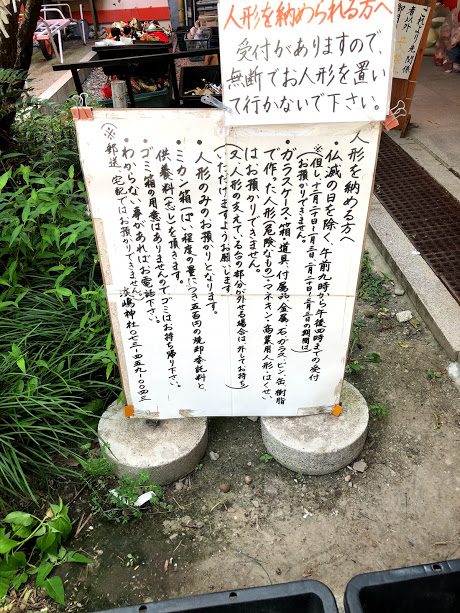 人形を納められる方へ
受付がありますので、
無断でお人形を置い
て行かないで下さい。
これより先関係
者以外
人形を納める方へ
・仏滅の日を除く、午前九時から午後四時までの受付
※但し、十二月二十日〜一月三日、二月二十日〜三月三日の期間は
お預かりできません。
・ガラスケース・箱・道具・付属品・金属・石・ガラス・ビン・缶・樹脂
で作った人形・危険なもの・マネキン・商業用人形・はくせい
はお預かりできません。
(又、人形の支えている台の部分が外せる場合は、外してお持ち
いただけますようお願いします)
・人形のみのお預かりとなります。
・ミカン箱一ぱい程度の量につき五百円の焼却委託料と、
供養料(志し)を頂きます。
・ゴミ箱の用意はありませんのでゴミはお持ち帰り下さい。
・わからない事があればお電話下さい。
※郵送・宅配ではお預かりできません。淡嶋神社〇七三-四五九-〇〇四三